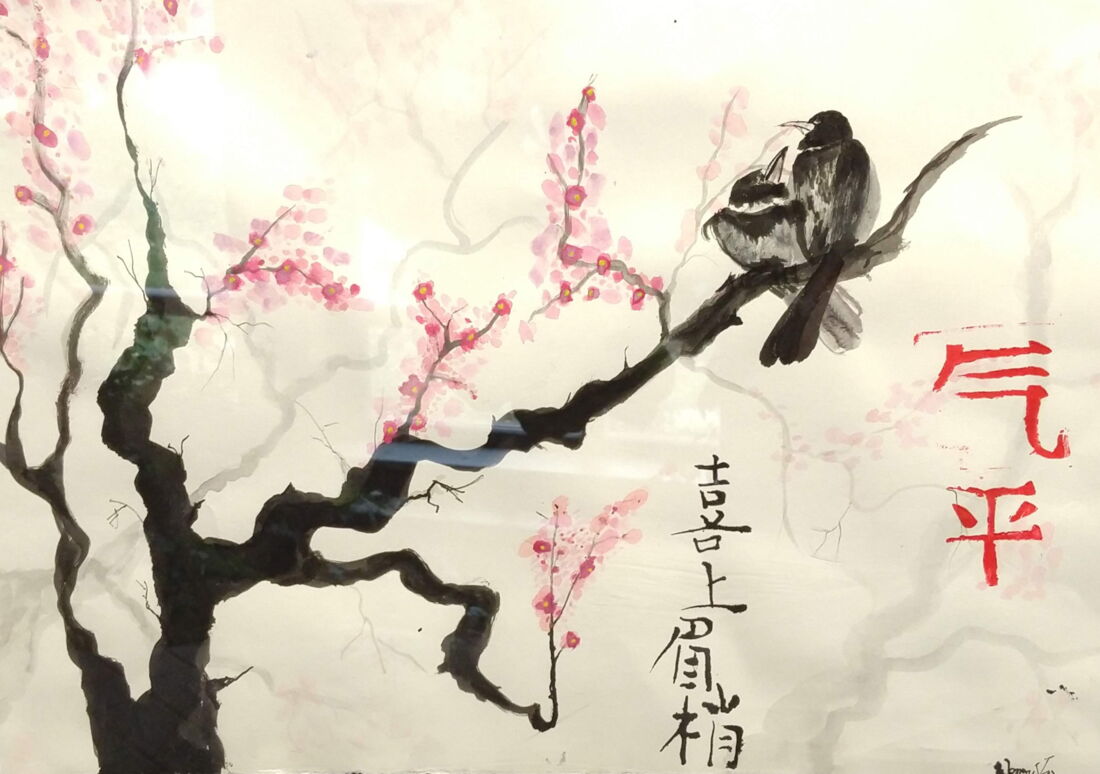 气平
喜上眉梢